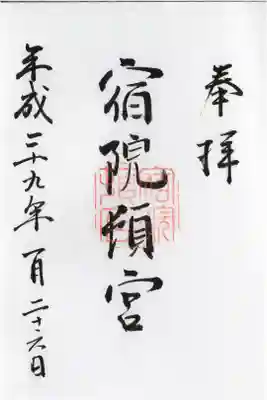 奉拝
宿院頓宮
平成二十九年一月二十六日